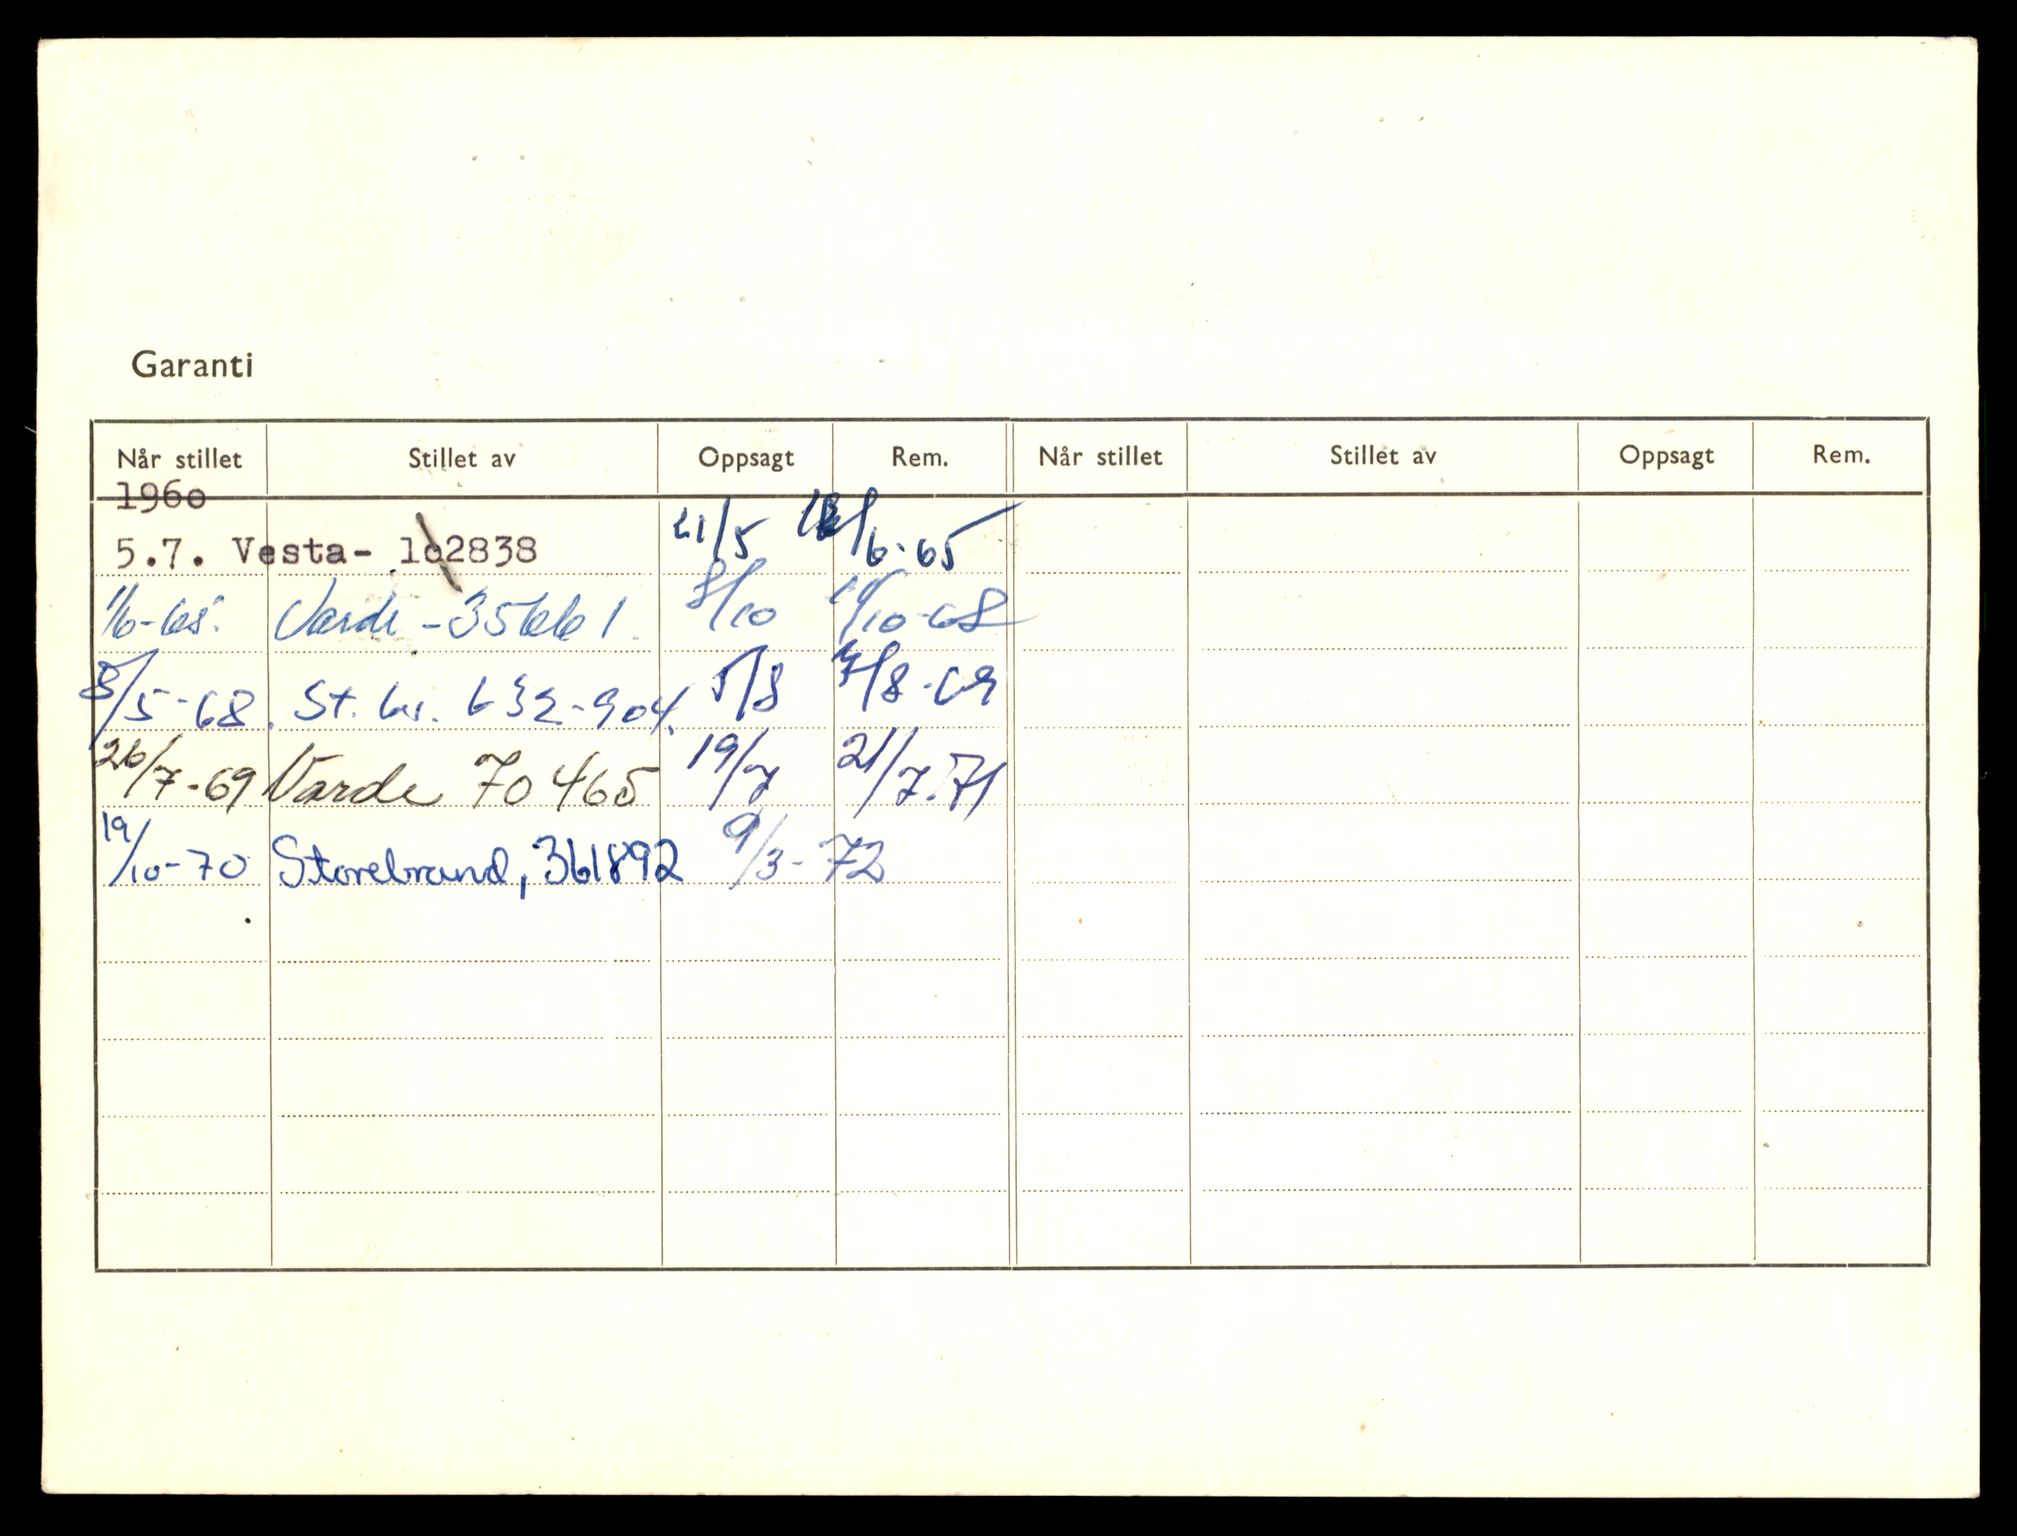 Garanti
Når stillet Stillet av Oppsagt Rem. Når stillet Stillet av Oppsagt Rem.
196o
5.7. Vesta- lo2838 21/5 /6-65
1/6-65. Varde - 35661. 8/10 /10-68
8/5-68. St. br. 632-904. 5/8 /8-69
26/7-69 Varde 70465 19/7 21/7.71
19/10-70 Storebrand, 361892 9/3-72